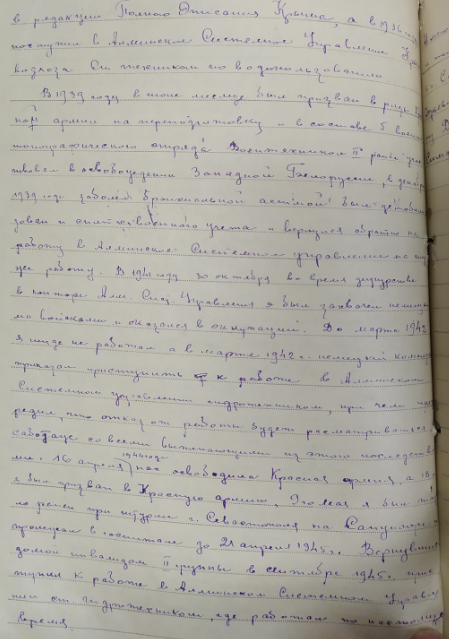 в редакции Полного Описания Крыма, а в 1936 году
поступил в Алминское Системное Управление Ук
водхоза Ст. техником по водопользованию
В 1939 году в июне месяце был призван в ряды Кр
ной армии на переподготовку и в составе 5 воен
топографического отряда Воентехником II ранга уча
ствовал в освобождении Западной Белоруссии, в декабре
1939 года заболел бронхиальной астмой был
зован и снят с учета и вернулся обратно на
работу в Алминское Системное управление на ту
же работу. В 1941 году 30 октября во время дежурства
в конторе Алм. Сист. Управления я был захвачен немецки
ми войсками и оказался в оккупации. До марта 1942
я нигде не работал а в марте 1942 г. немецкий комен
приказал приступить к работе в Алминском
Системном управлении гидротехником, при чем
что отказ от работы будет рассматриваться
саботаж со всеми вытекающими из этого последстви
ми. 16 апреля 1944 года нас освободила Красная армия, а 18
я был призван в Красную армию, 7го мая я был тяже
ло ранен при штурме г. Севастополя на Сапун
пролежал в госпитале до 21 апреля 1945 г. Вернувшись
домой инвалидом II группы в сентябре 1945 г. прис
тупил к работе в Алминском Системном Управле
нии ст. гидротехником, где работаю по настоящее
время.